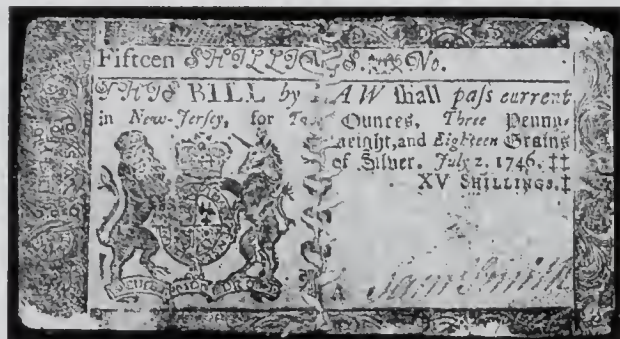 Fifteen SHILLINGS. No.
THIS BILL by LAW shall paſs current
in New-Jersey, for Two Ounces, Three Penny-
weight, and Eighteen Grains
of Silver. July 2. 1746. ‡‡
XV SHILLINGS. ‡
A Sam Smith